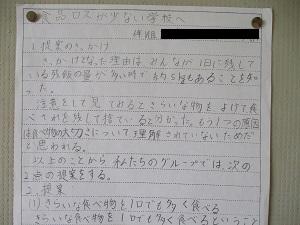 食品ロスが少ない学校へ
1.提案のきっかけ
きっかけとなった理由は、みんなが1日に残して
いる残飯の量が多い時で約5kgもあることを知っ
た。
注意をして見てみるときらいな物をよけて食
べそれを残して捨てていると分かった。もう1つの原因
は食べ物の大切さについて理解されていないためだ
と思われる。
以上のことから私たちのグループでは、次の
2点の提案をする。
2.提案
(1)きらいな食べ物を1口でも多く食べる
きらいな食べ物を1口でも多く食べるということ